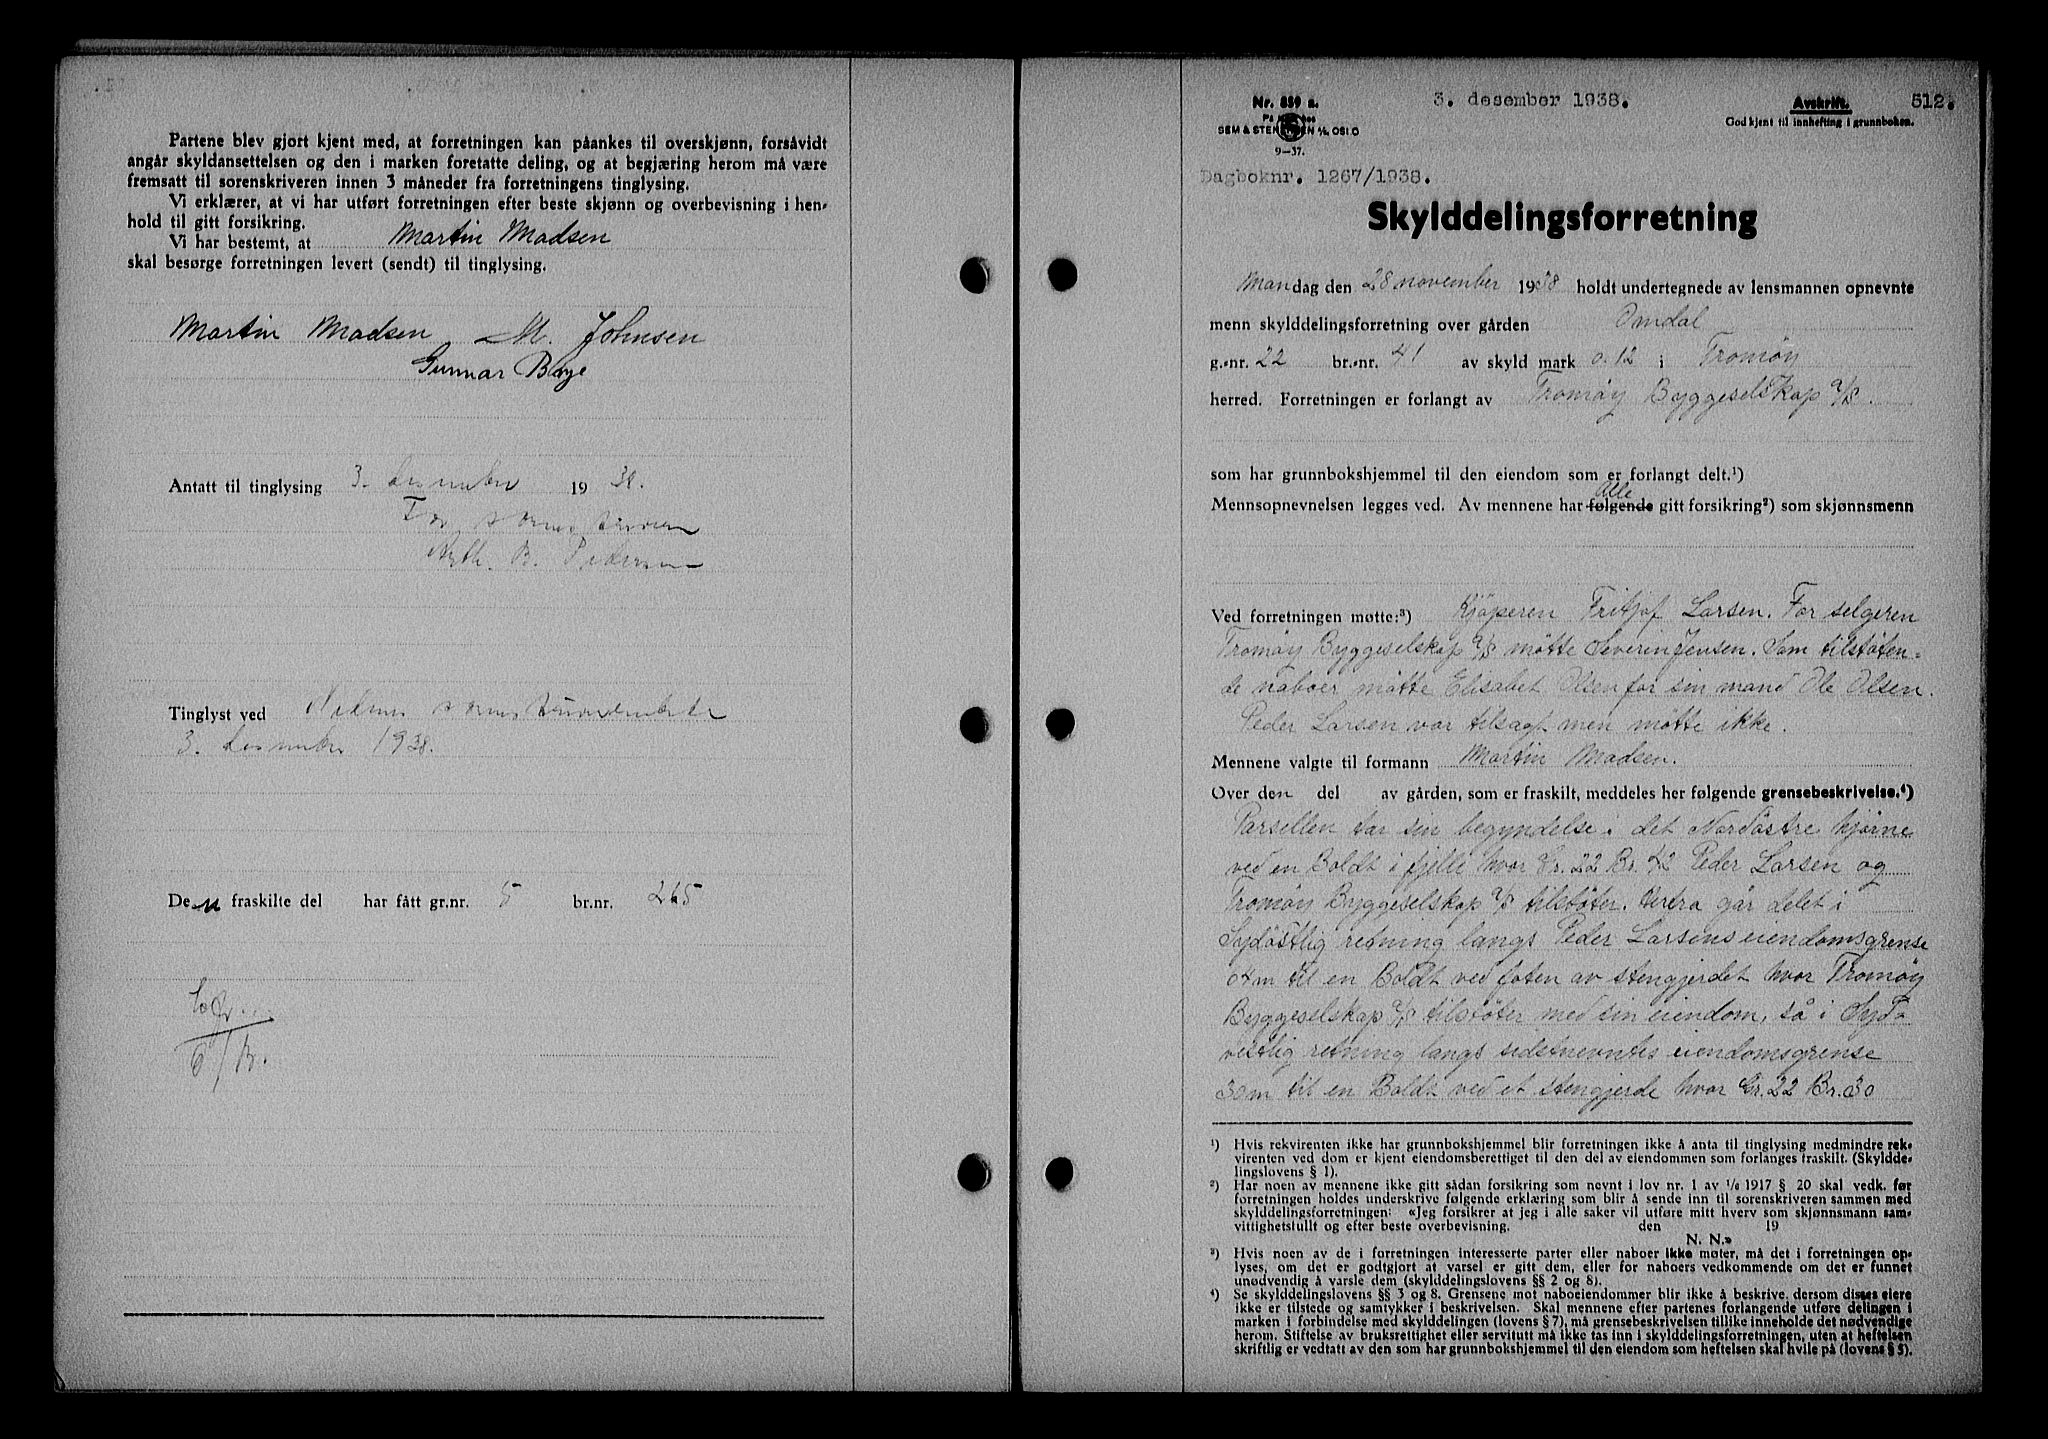 Partene blev gjort kjent med, at forretningen kan påankes til overskjønn, forsåvidt
angår skyldansettelsen og den i marken foretatte deling, og at begjæring herom må være
fremsatt til sorenskriveren innen 3 måneder fra forretningens tinglysing.
Vi erklærer, at vi har utført forretningen efter beste skjønn og overbevisning i hen-
hold til gitt forsikring.
Vi har bestemt, at Martin Madsen
skal besørge forretningen levert (sendt) til tinglysing.
Martin Madsen M. Johnsen
Gunnar Boye
Antatt til tinglysing 3. desember 1938.
For sorenskriveren
B. Pedersen
Tinglyst ved Nedenes sorenskriverembete
3. desember 1938.
Den fraskilte del har fått gr.nr. 5 br.nr. 265
Nr. 859 a.
SEM & STENERSEN A/S, OSLO
9-37.
3. desember 1938.
Avskrift.
512.
Godkjent til innhefting i grunnboken.
Dagboknr. 1267/1938.
Skylddelingsforretning
Mandag den 28 november 1938 holdt undertegnede av lensmannen opnevnte
menn skylddelingsforretning over gården Omdal
g.-nr. 22 br.-nr. 41 av skyld mark 0.12 i Tromøy
herred. Forretningen er forlangt av Tromøy Byggeselskap A/S.
som har grunnbokshjemmel til den eiendom som er forlangt delt.¹)
Alle
Mennsopnevnelsen legges ved. Av mennene har følgende gitt forsikring²) som skjønnsmenn
Ved forretningen møtte:³) Kjøperen Fritjof Larsen. For selgeren
Tromøy Byggeselskap A/S møtte Severin Jensen. Som tilstøten-
de naboer møtte Elisabet Olsen for sin mand Ole Olsen.
Peder Larsen var tilsagt men møtte ikke.
Mennene valgte til formann Martin Madsen.
Over den del av gården, som er fraskilt, meddeles her følgende grensebeskrivelse.⁴)
Parsellen tar sin begyndelse i det Nordøstre hjørne
ved en Boldt i fjell hvor Gr. 22 Br. 42 Peder Larsen og
Tromøy Byggeselskap A/S tilstøter. Derfra går delet i
Sydøstlig retning langs Peder Larsens eiendomsgrense
til en Boldt ved foten av stengjerdet hvor Tromøy
Byggeselskap A/S tilstøter med sin eiendom, så i Syd-
vestlig retning langs sidstnevntes eiendomsgrense
30m til en Boldt ved et stengjerde hvor Gr. 22 Br. 30
¹) Hvis rekvirenten ikke har grunnbokshjemmel blir forretningen ikke å anta til tinglysing medmindre rek-
virenten ved dom er kjent eiendomsberettiget til den del av eiendommen som forlanges fraskilt. (Skyldde-
lingslovens § 1).
²) Har noen av mennene ikke gitt sådan forsikring som nevnt i lov nr. 1 av 1/6 1917 § 20 skal vedk. før
forretningen holdes underskrive følgende erklæring som blir å sende inn til sorenskriveren sammen med
skylddelingsforretningen: «Jeg forsikrer at jeg i alle saker vil utføre mitt hverv som skjønnsmann sam-
vittighetsfullt og efter beste overbevisning. den 19
N. N.»
³) Hvis noen av de i forretningen interesserte parter eller naboer ikke møter, må det i forretningen op-
lyses, om det er godtgjort at varsel er gitt dem, eller for naboers vedkommende om det er funnet
unødvendig å varsle dem (skylddelingslovens §§ 2 og 8).
⁴) Se skylddelingslovens §§ 3 og 8. Grensene mot naboeiendommer blir ikke å beskrive, dersom disses eiere
ikke er tilstede og samtykker i beskrivelsen. Skal mennene efter partenes forlangende utføre delingen i
marken i forbindelse med skylddelingen (lovens § 7), må grensebeskrivelsen tillike inneholde det nødvendige
herom. Stiftelse av bruksrettighet eller servitutt må ikke tas inn i skylddelingsforretningen, uten at heftelsen
skriftlig er vedtatt av den som har grunnbokshjemmel til den eiendom som heftelsen skal hvile på (lovens § 5).